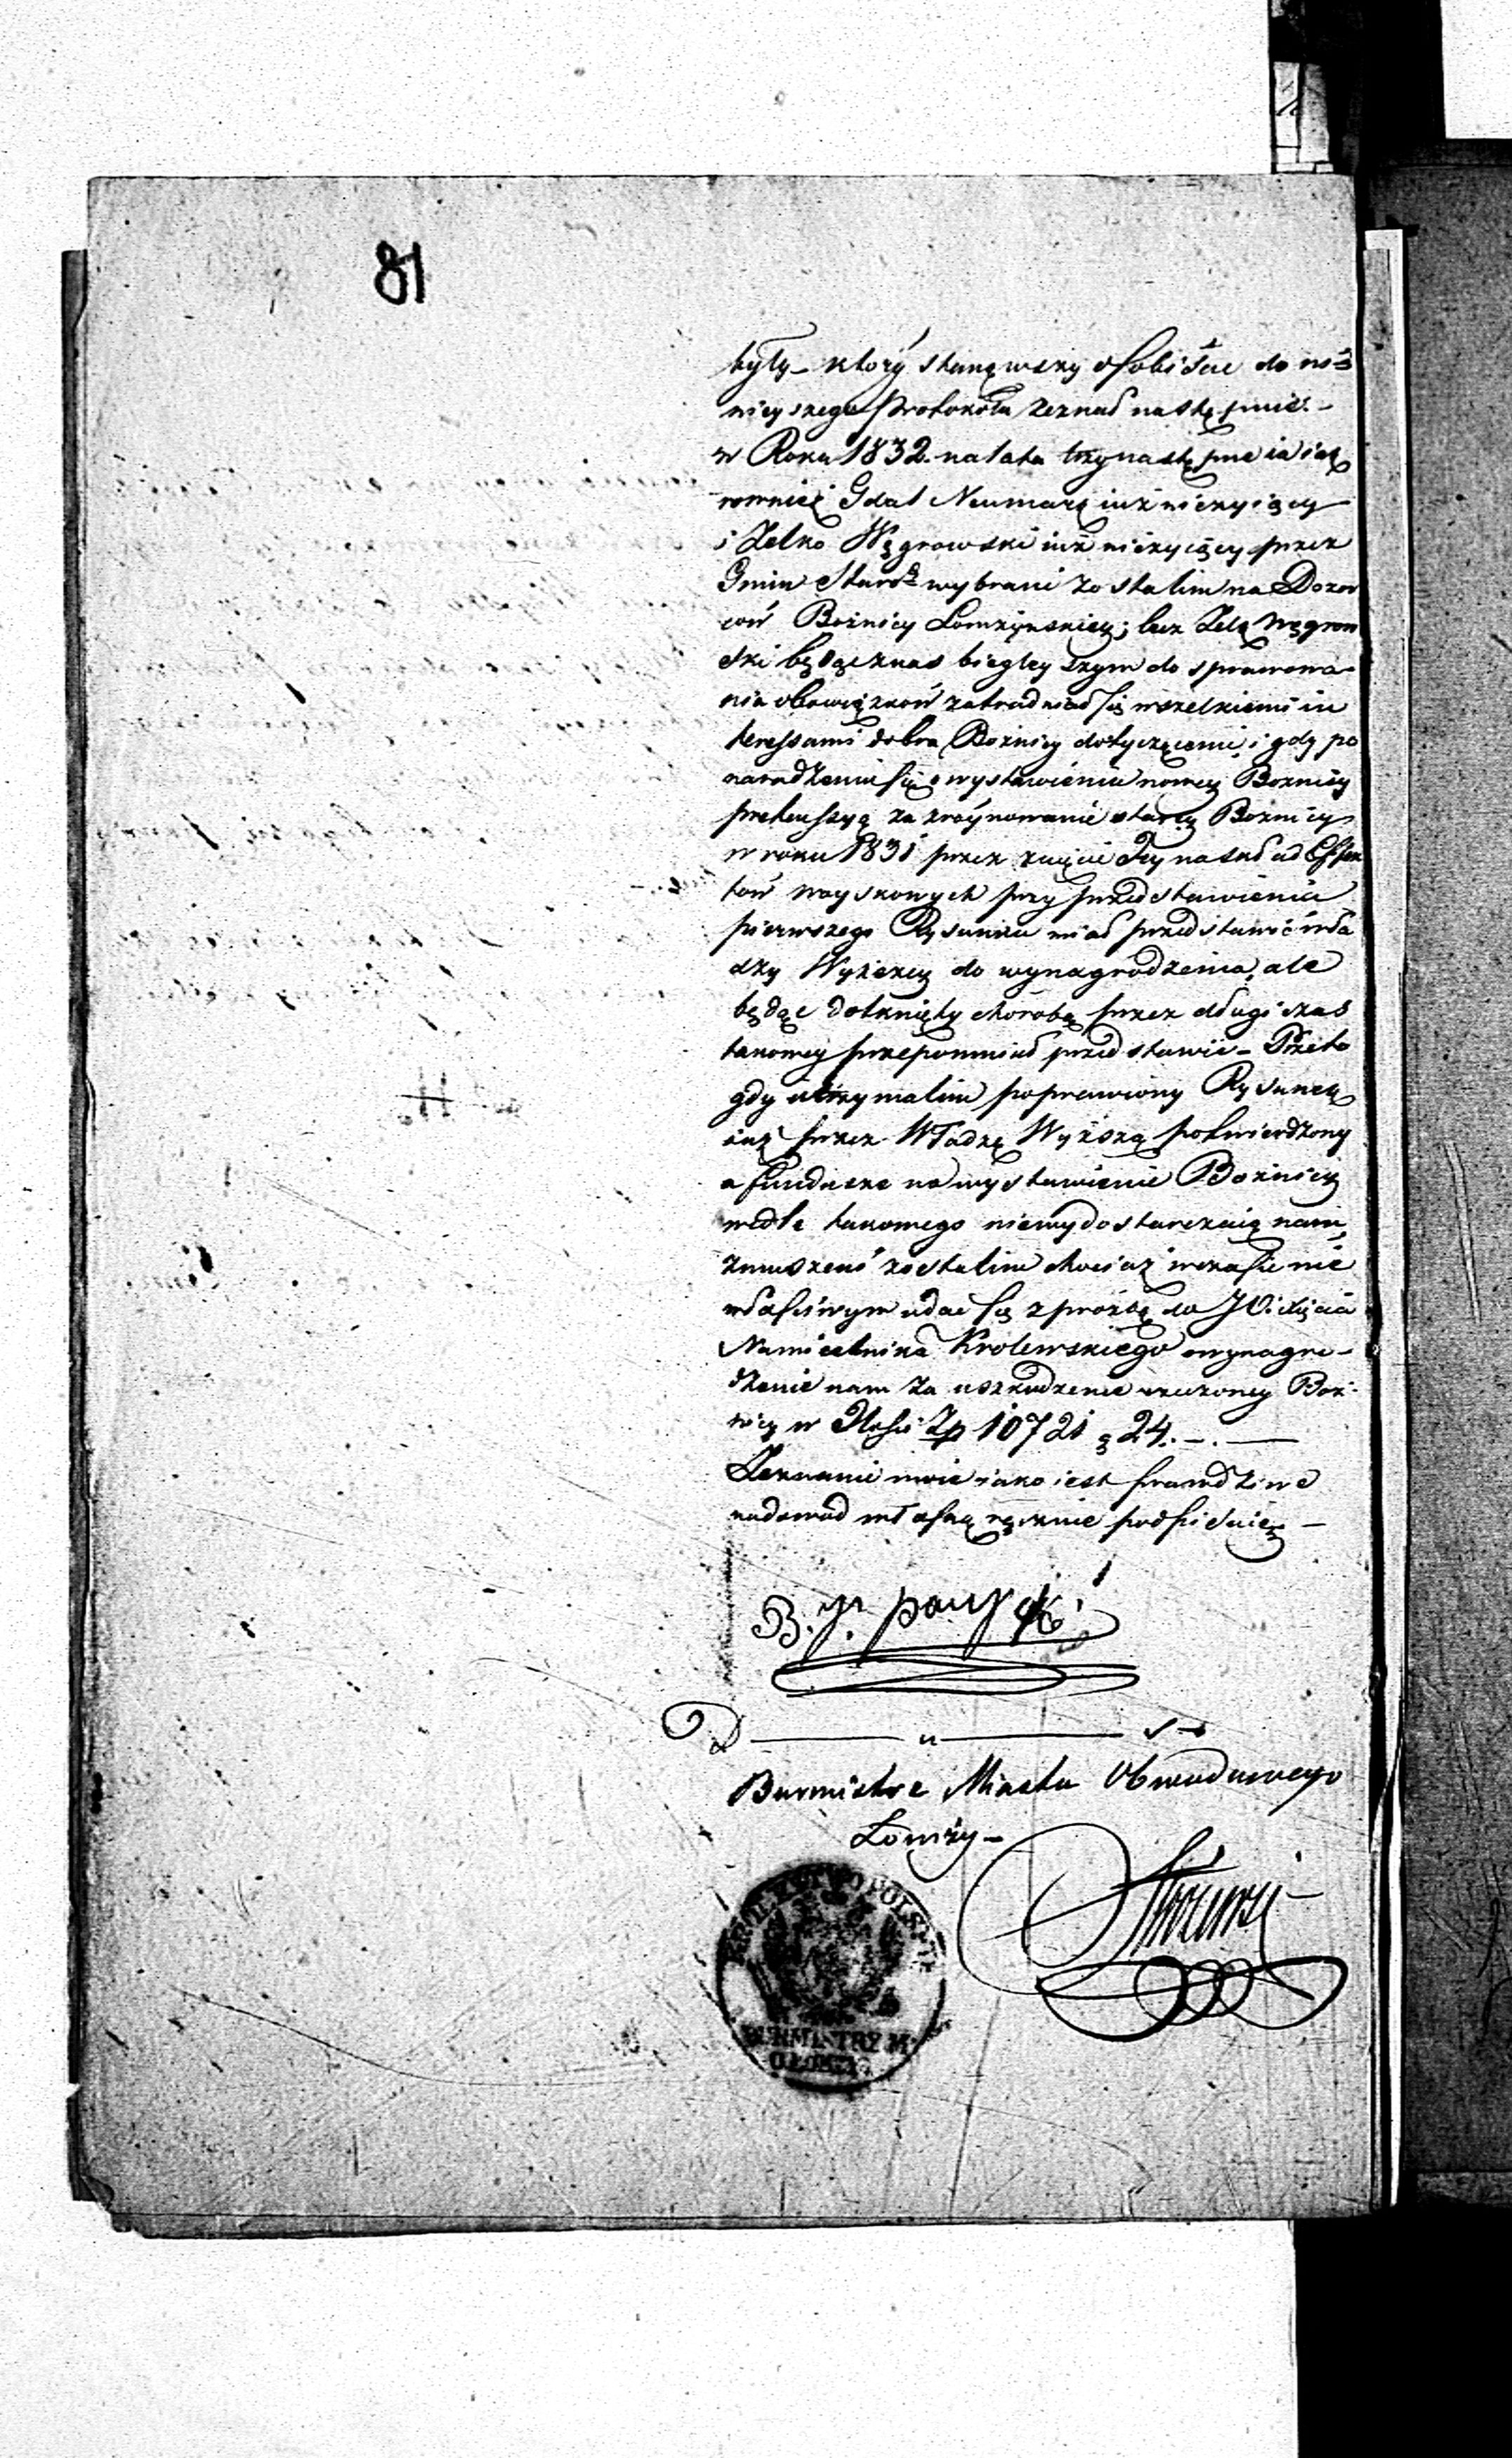 81
były - który stanąwszy osobiście do ni-
nieyszego Protokołu zeznał następnie. -
w Roku 1832. na lata trzy następne ia iak
rownież Gdal Neumark iuż nieżyiący
i Zelko Węgrowski iuż nieżyiący przez
Gmin Staroz: wybrani zostalim na Dozor
ców Bożnicy Łomżyńskiey; lecz Zelk Węgrow
ski będąc z nas biegleyszym do sprawowa-
nia obowiązków zatrudniał się wszelkiemi in
teressami dobra Bożnicy dotyczącemi, i gdy po
naradzeniu się o wystawieniu nowey Bożnicy
pretensyą za zróynowanie starey Bożnicy
w roku 1831 przez zaięcie Jey na skład Effek
tów woyskowych przy przedstawieniu
pierwszego Rysunku miał przedstawić wła
dzy Wyższey do wynagrodzenia, ale
będąc dotknięty chorobą przez długi czas
takowey przepomniał przedstawić - Przeto
gdy otrzymalim poprawiony Rysunek
iuż przez Władzę Wyższą potwierdzony
a fundusze na wystawienie Bożnicy
wedle takowego niewydostarczaią nam,
zmuszeni zostalim chociaż w czasie nie
właściwym udać się z prozbą do JO. Xięcia
Namiestnika Krolewskiego o wynagro-
dzenie nam za uszkodzenie rzeczoney Boż-
nicy w Ilości Zp 10721 g 24. -. -
Zeznanie moie iako iest prawdziwe
na dowod własną ręcznie podpisuię -
B. J.
D — u — s -
Burmistrz Miasta Obwodowego
Łomży -
KRÓLESTWO POLSKIE
BURMISTRZ M.